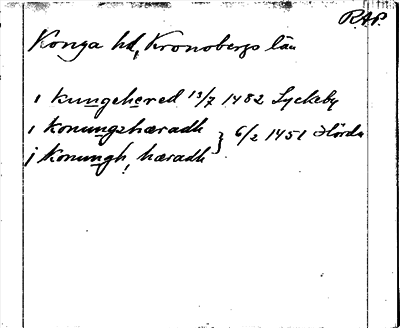 R.A.P.
Konga hd, Kronobergs län
i kungehered 13/7 1482 Lyckeby
i konungzhæradh
j Konungh, hæradh } 6/2 1451 Hörda